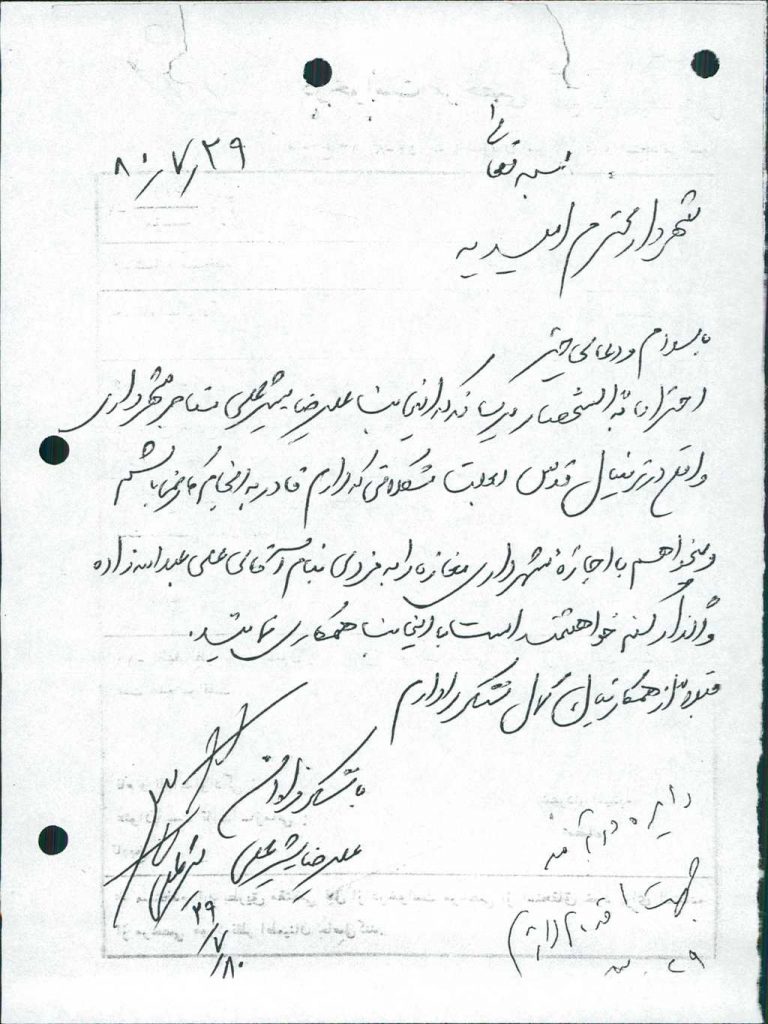 بسمه تعالی
۸۰/۷/۲۹
شهردار محترم امیدیه
با سلام و دعای خیر
احتراماً به استحضار میرساند که اینجانب علیرضا شیرعلی مستاجر شهرداری
واقع در ترمینال قدس بعلت مشکلاتی که دارم قادر به انجام کار نمی باشم
و میخواهم با اجازه شهرداری مغازه را به فردی بنام آقای علی عبداله زاده
واگذار کنم خواهشمند است با اینجانب همکاری نمائید.
قبلاً از همکاریتان کمال تشکر را دارم
با تشکر فراوان
علیرضا شیرعلی
۲۹/۷/۸۰
دایره درآمد
جهت اقدام لازم